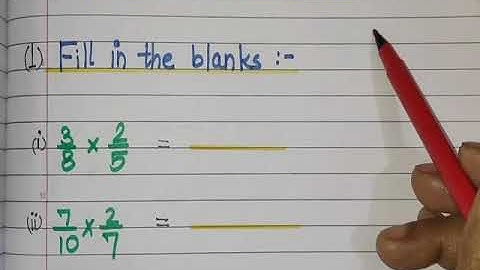 (1) Fill in the blanks :-
(i) 3/8 × 2/5 = ____
(ii) 7/10 × 2/7 = ____